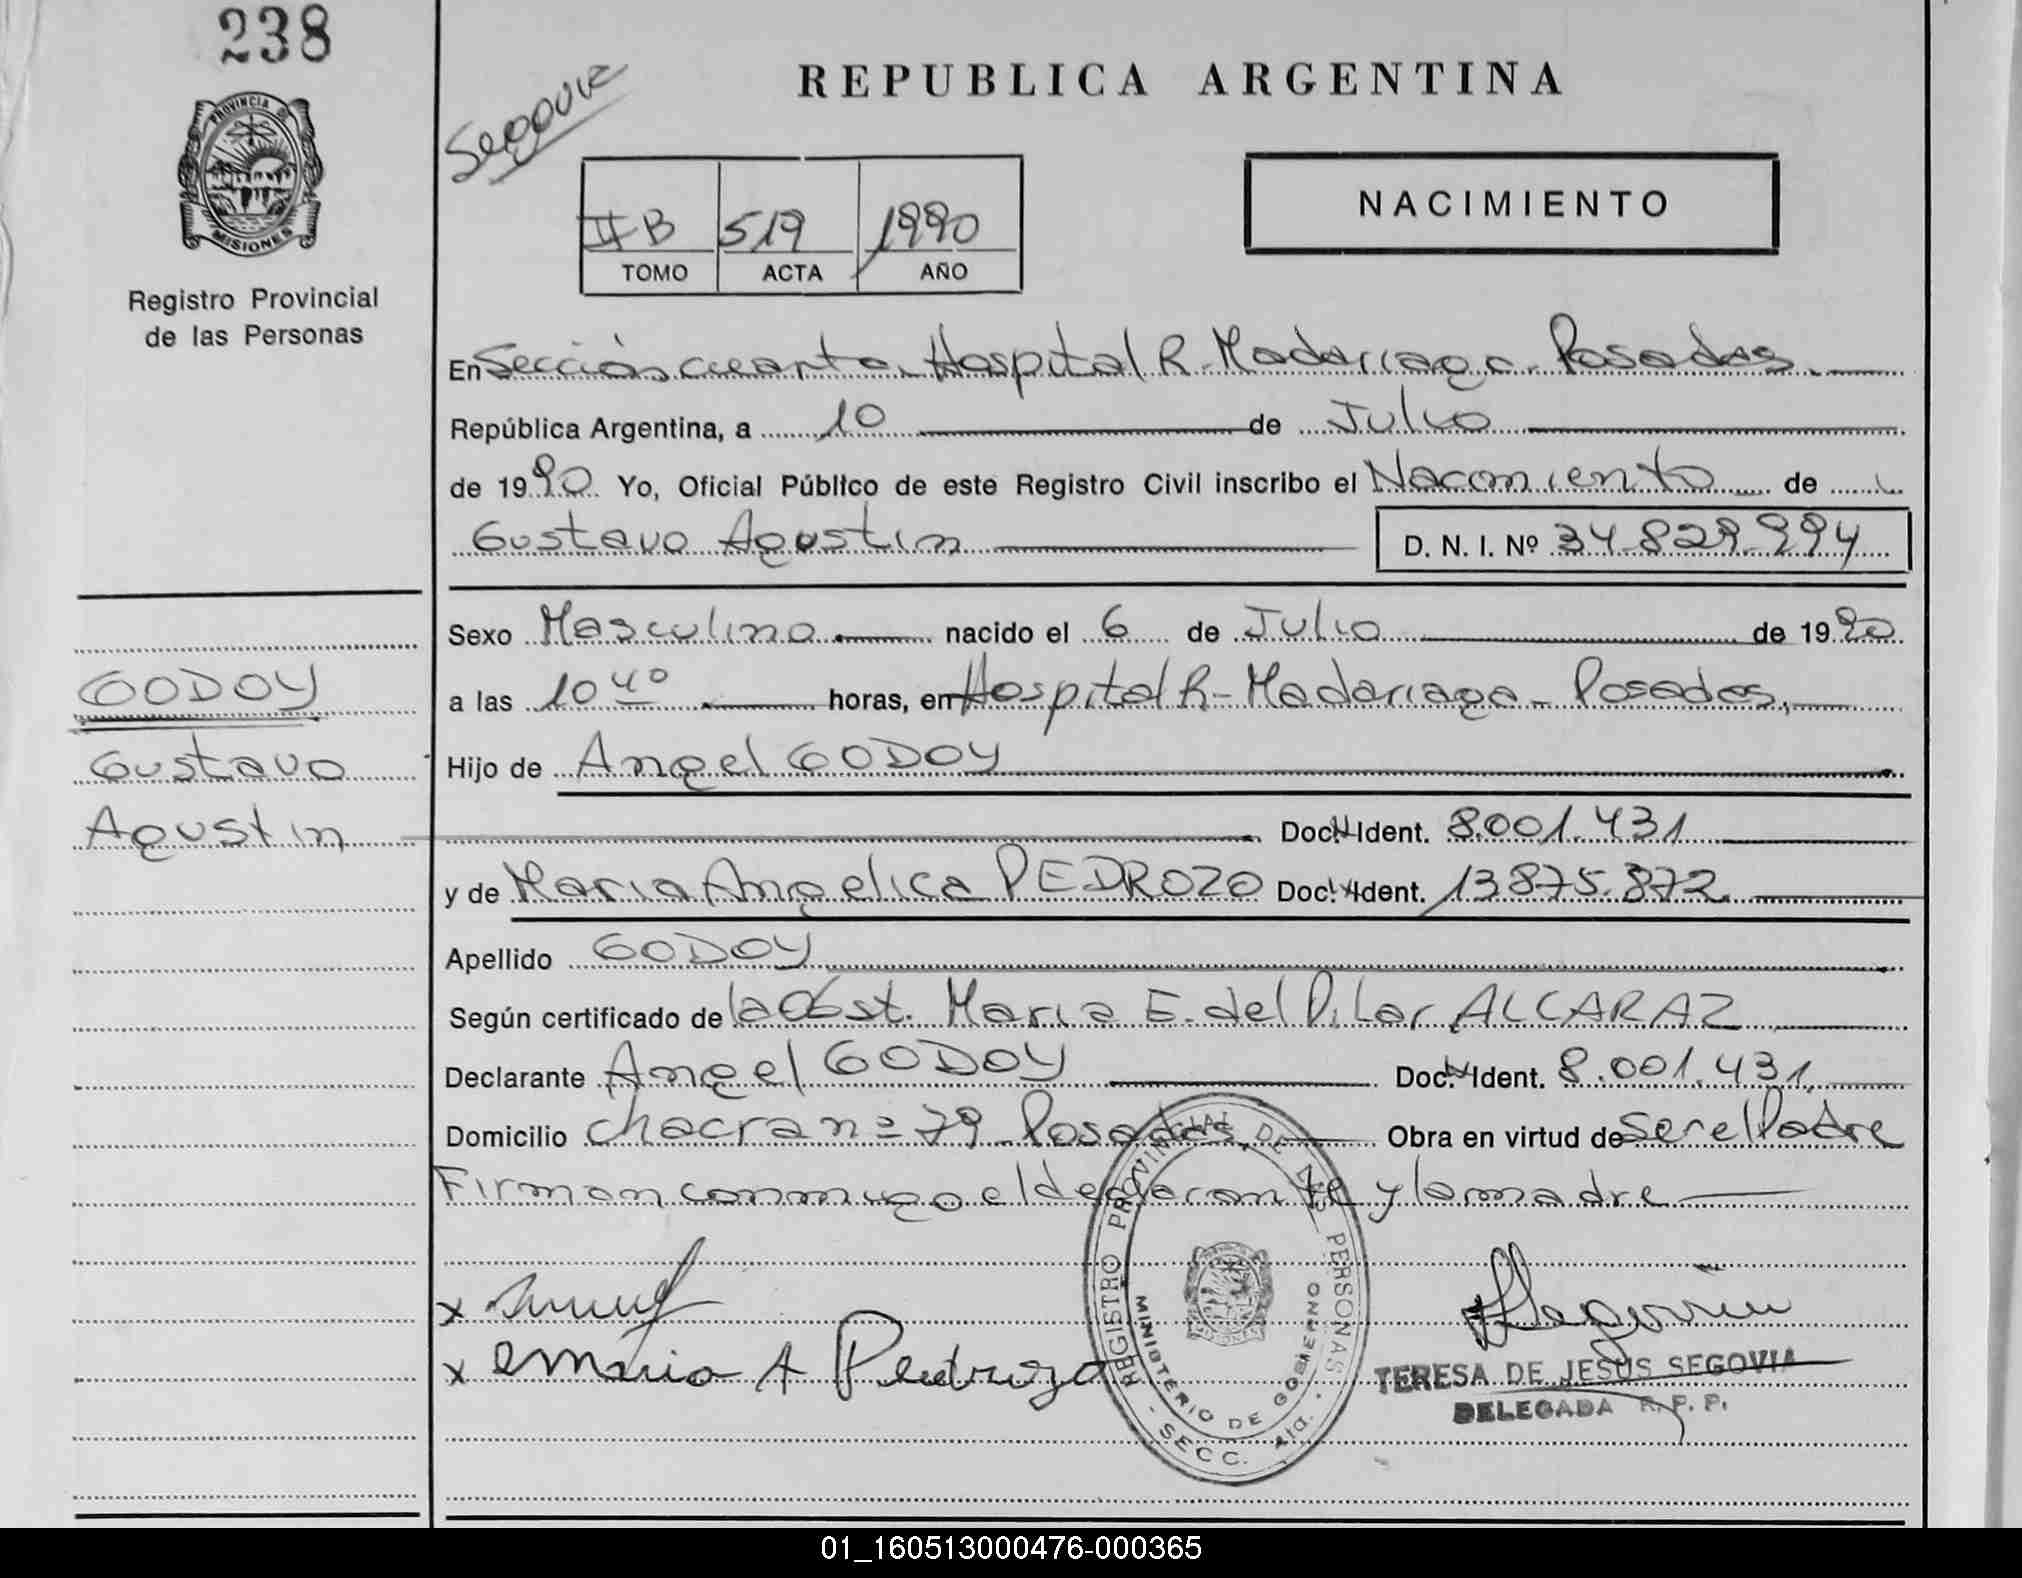 238
PROVINCIA DE
MISIONES
Registro Provincial
de las Personas
GODOY
Gustavo
Agustin
REPUBLICA ARGENTINA
NACIMIENTO
II B 519 1990
TOMO ACTA AÑO
En Sección cuarta. Hospital R. Madariaga. Posadas.
República Argentina, a 10 de Julio
de 1990 Yo, Oficial Público de este Registro Civil inscribo el Nacimiento de
Gustavo Agustin D. N. I. Nº 34.829.994
Sexo Masculino nacido el 6 de Julio de 1990
a las 10 40 horas, en Hospital R. Madariaga - Posadas.
Hijo de Angel GODOY
Doc. Ident. 8.001.431
y de Maria Angelica PEDROZO Doc. Ident. 13.875.872
Apellido GODOY
Según certificado de la Obst. Maria E. del Pilar ALCARAZ
Declarante Angel GODOY Doc. Ident. 8.001.431.
Domicilio chacra nº 79 Posadas. Obra en virtud de ser el Padre
Firman conmigo el declarante y la madre
x
x Maria A Pedrozo
REGISTRO PROVINCIAL DE LAS PERSONAS
MINISTERIO DE GOBIERNO
SECC. 4ta.
TERESA DE JESUS SEGOVIA
DELEGADA R. P. P.
01_160513000476-000365